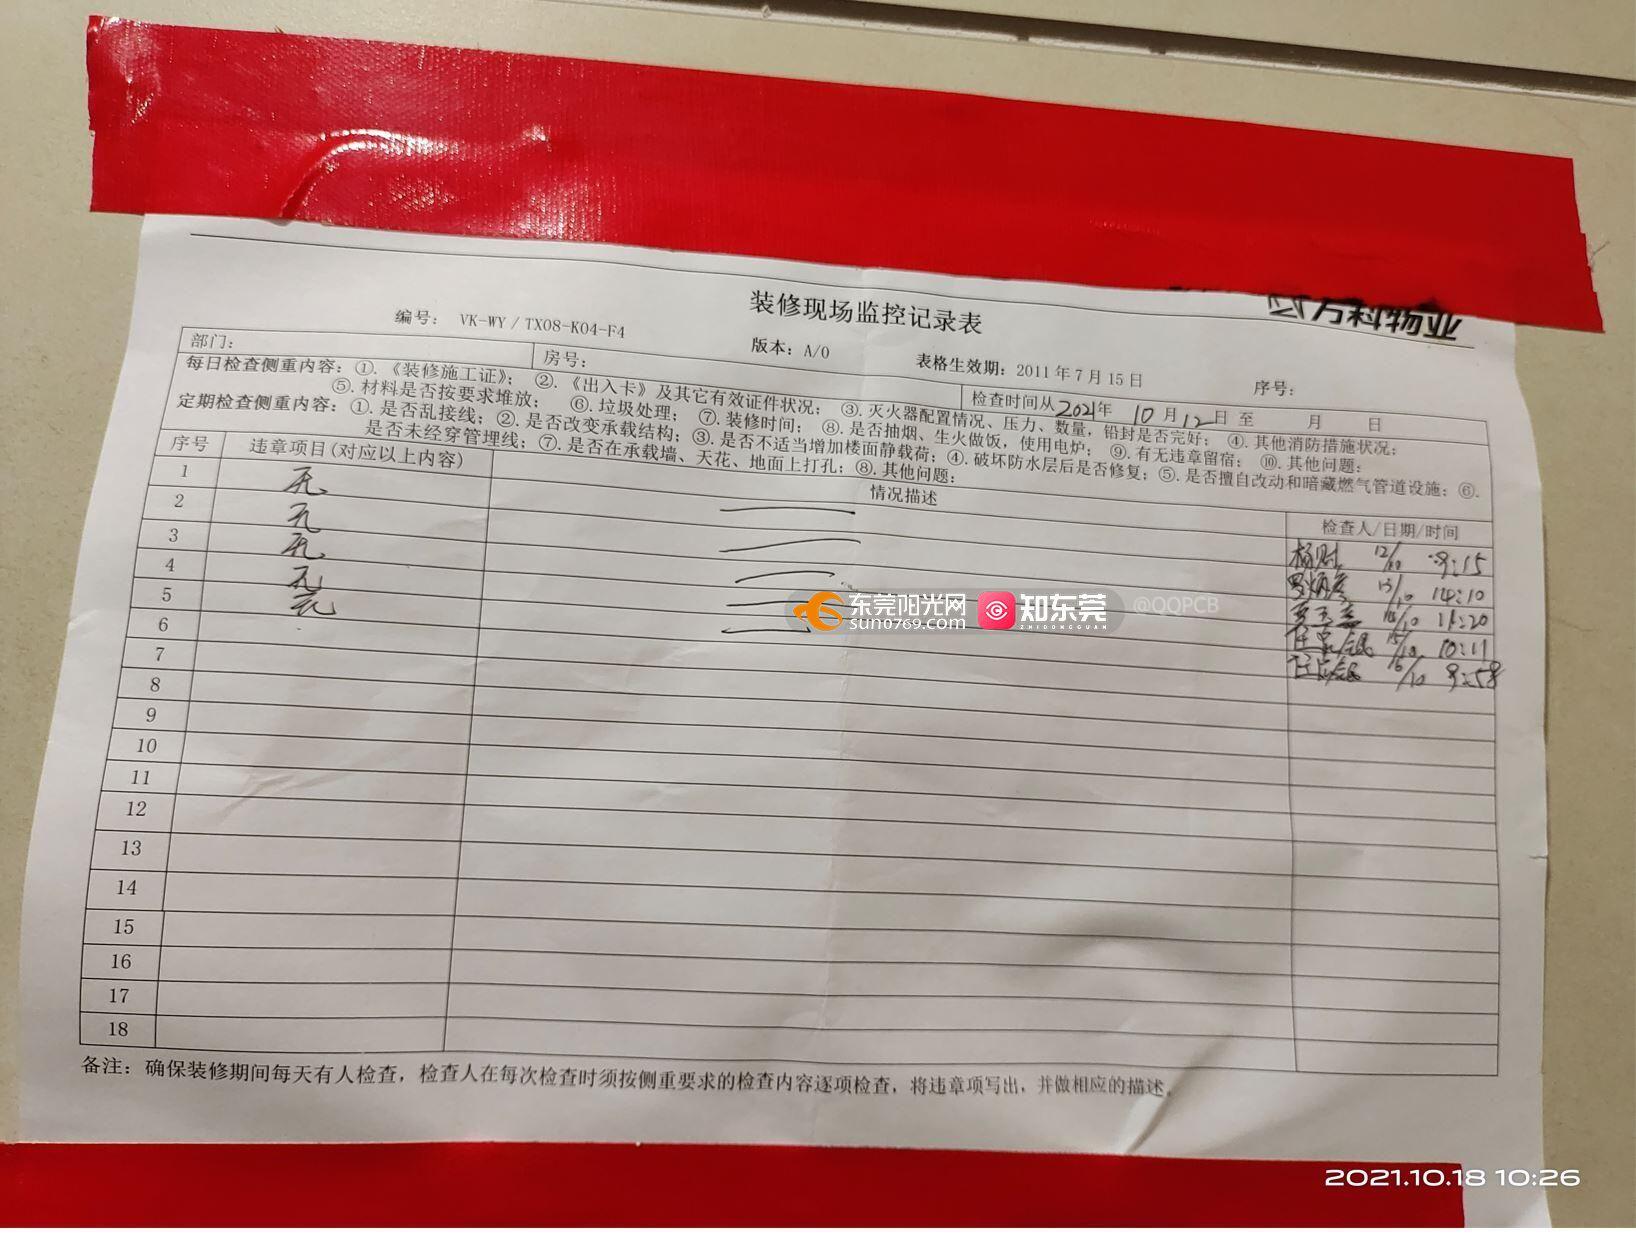 万科物业
装修现场监控记录表
编号： VK-WY / TX08-K04-F4
版本：A/0
表格生效期：2011 年 7 月 15 日
序号：
部门：
房号：
检查时间从 2021 年 10 月 12 日 至 月 日
每日检查侧重内容：①.《装修施工证》； ②.《出入卡》及其它有效证件状况； ③.灭火器配置情况、压力、数量，铅封是否完好； ④.其他消防措施状况；
⑤.材料是否按要求堆放； ⑥.垃圾处理； ⑦.装修时间； ⑧.是否抽烟、生火做饭，使用电炉； ⑨.有无违章留宿； ⑩.其他问题：
定期检查侧重内容：①.是否乱接线；②.是否改变承载结构；③.是否不适当增加楼面静载荷；④.破坏防水层后是否修复；⑤.是否擅自改动和暗藏燃气管道设施；⑥.
是否未经穿管埋线；⑦.是否在承载墙、天花、地面上打孔；⑧.其他问题：
序号 违章项目(对应以上内容) 情况描述 检查人/日期/时间
1 无 12/10 9:15
2 无 13/10 14:10
3 无 11:20
4 无 15/10 10:11
5 无 16/10 9:58
6
7
8
9
10
11
12
13
14
15
16
17
18
备注：确保装修期间每天有人检查，检查人在每次检查时须按侧重要求的检查内容逐项检查，将违章项写出，并做相应的描述。
东莞阳光网
sun0769.com
知东莞
ZHIDONGGUAN
@QQPCB
2021.10.18 10:26